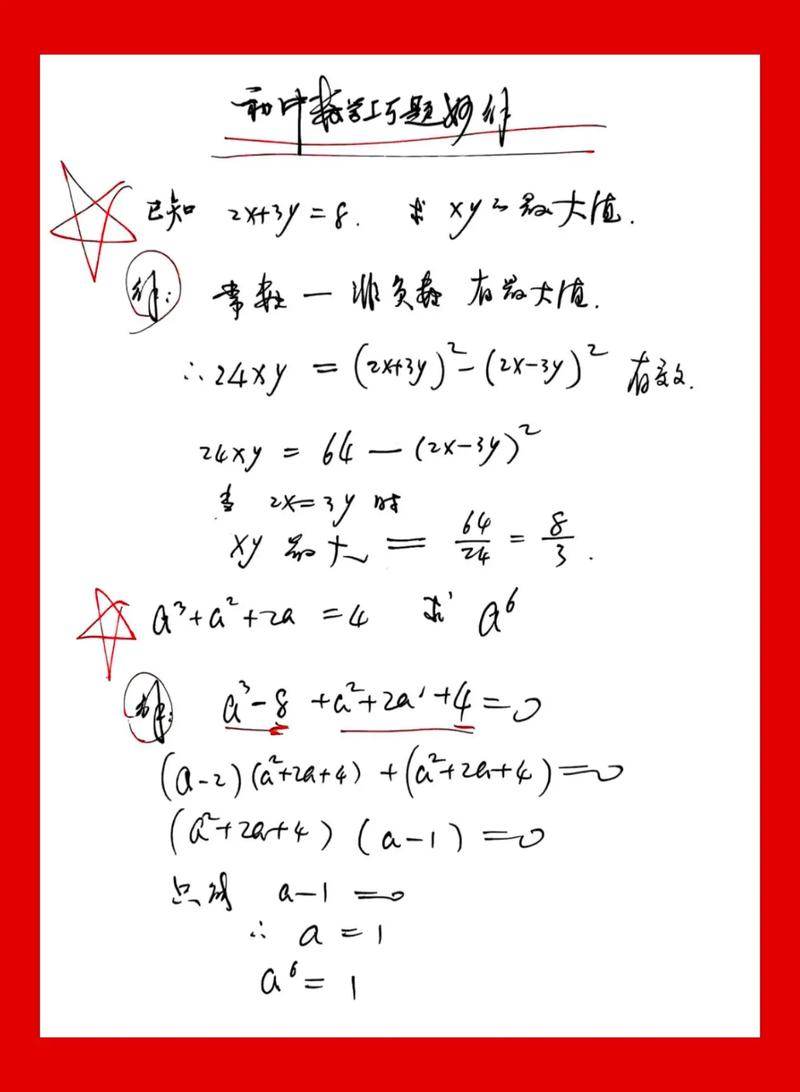 初中数学巧题妙解
已知 2x+3y=8. 求 xy之最大值.
解: 常数一非负数 有最大值.
∴24xy = (2x+3y)²-(2x-3y)² 有最大.
24xy = 64 — (2x-3y)²
当 2x=3y 时
xy 最大 = 64/24 = 8/3.
a³+a²+2a =4 求 a⁶
解: a³-8 +a²+2a+4=0
(a-2)(a²+2a+4) +(a²+2a+4)=0
(a²+2a+4) (a-1) =0
只有 a-1 =0
∴ a =1
a⁶= 1